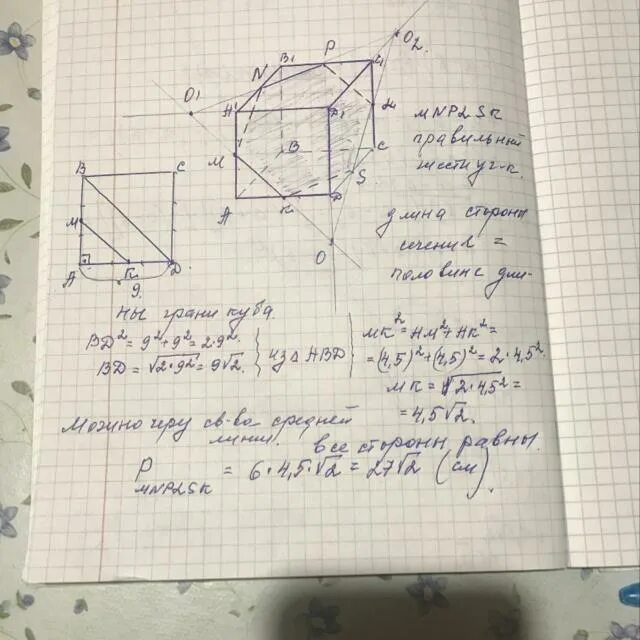 O₂
B₁ P C₁
N
O₁
A₁ D₁ L
M B C
S
A K D
O
MNPLSK
правильный
шестиуг-к.
B C
M
A K D
9
длина стороны
сечения =
половине дли-
ны грани куба
BD² = 9² + 9² = 2·9²
BD = √2·9² = 9√2
из ΔABD
MK² = AM² + AK² =
= (4,5)² + (4,5)² = 2·4,5²
MK = √2·4,5² =
= 4,5√2.
Можно через св-ва средней
линии.
все стороны равны.
P MNPLSK = 6·4,5·√2 = 27√2 (см)